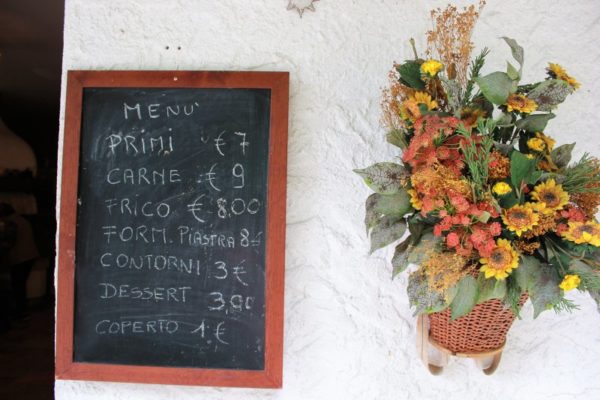 MENU'
PRIMI € 7
CARNE € 9
FRICO € 8,00
FORM. PIASTRA 8 €
CONTORNI 3 €
DESSERT 3,00
COPERTO 1 €